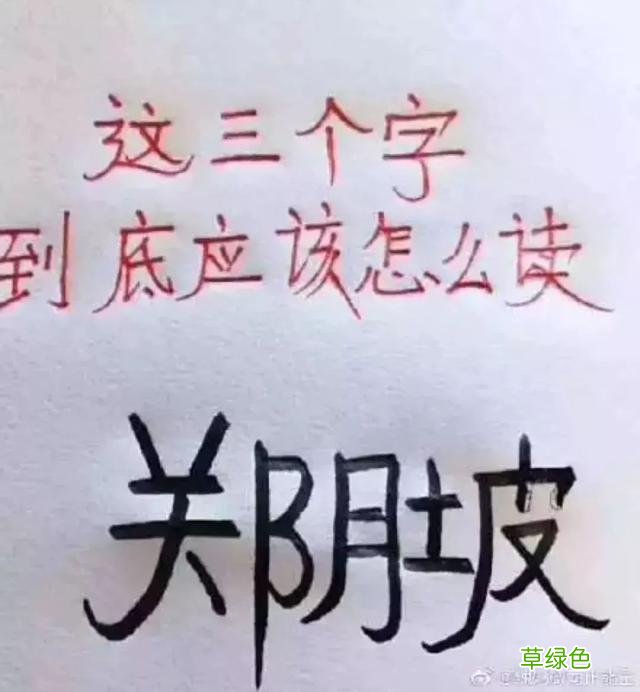 这三个字
到底应该怎么读
郑阴坡
草绿色